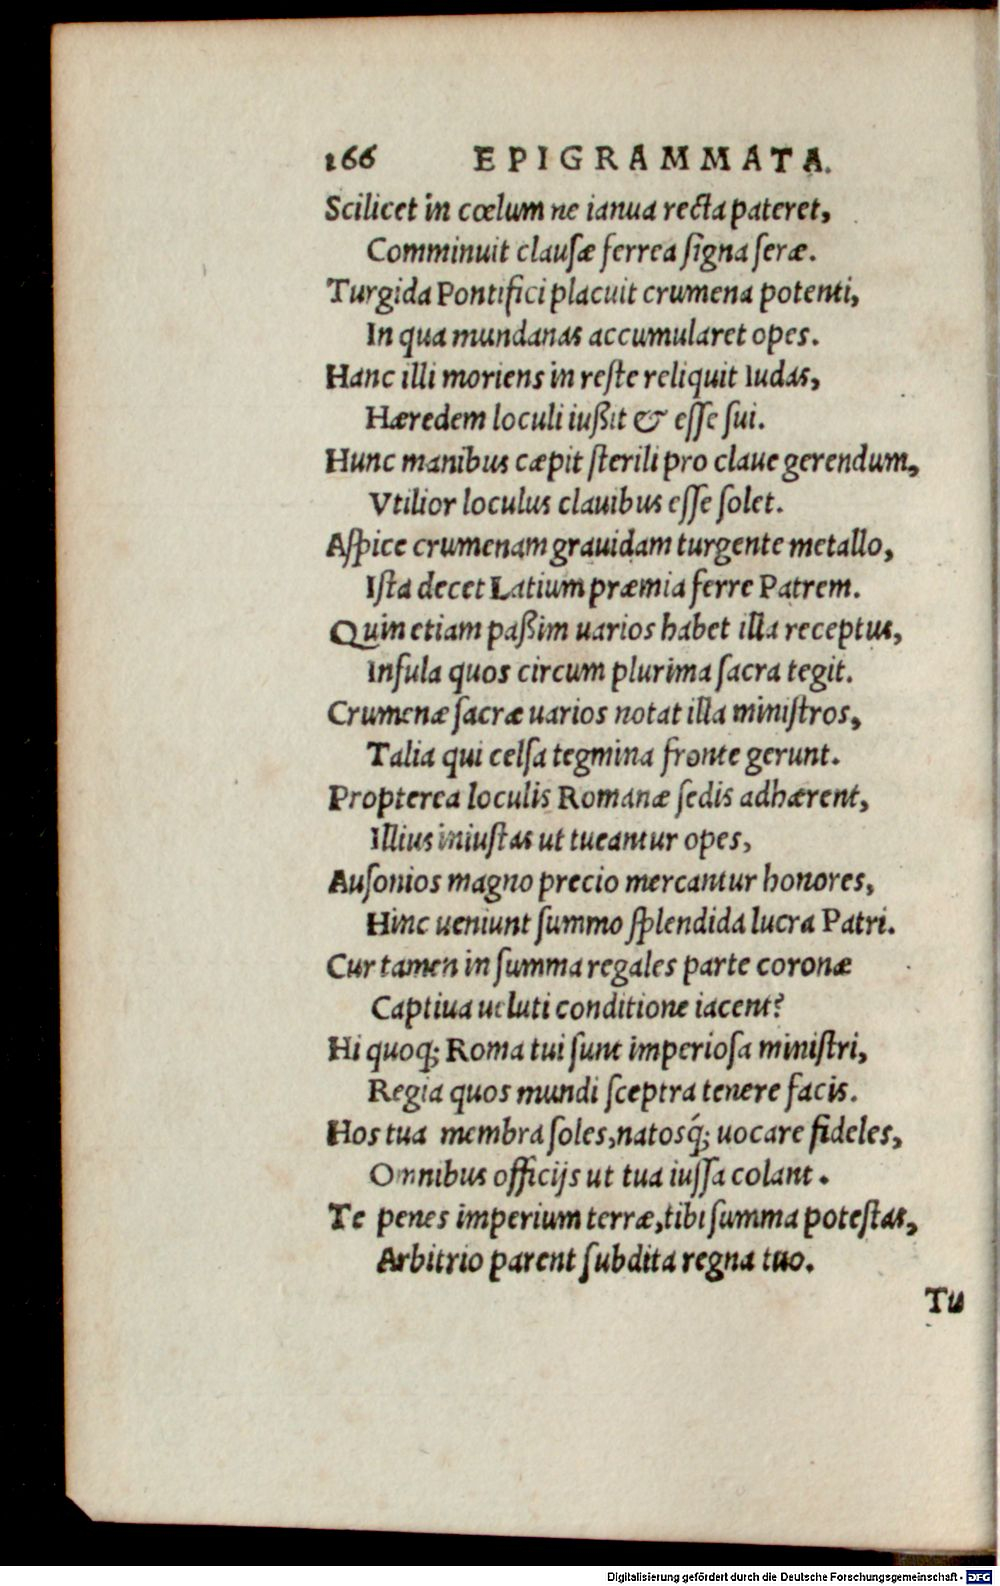 166 EPIGRAMMATA.
Scilicet in cœlum ne ianua recta pateret,
Comminuit clausæ ferrea signa seræ.
Turgida Pontifici placuit crumena potenti,
In qua mundanas accumularet opes.
Hanc illi moriens in reste reliquit Iudas,
Hæredem loculi iußit & esse sui.
Hunc manibus cæpit sterili pro claue gerendum,
Vtilior loculus clauibus esse solet.
Aspice crumenam grauidam turgente metallo,
Ista decet Latium præmia ferre Patrem.
Quin etiam paßim uarios habet illa receptus,
Insula quos circum plurima sacra tegit.
Crumenæ sacræ uarios notat illa ministros,
Talia qui celsa tegmina fronte gerunt.
Propterea loculis Romanæ sedis adhærent,
Illius iniustas ut tueantur opes,
Ausonios magno precio mercantur honores,
Hinc ueniunt summo splendida lucra Patri.
Cur tamen in summa regales parte coronæ
Captiua ueluti conditione iacent?
Hi quoq; Roma tui sunt imperiosa ministri,
Regia quos mundi sceptra tenere facis.
Hos tua membra soles, natosq́; uocare fideles,
Omnibus officijs ut tua iussa colant.
Te penes imperium terræ, tibi summa potestas,
Arbitrio parent subdita regna tuo.
Tu
Digitalisierung gefördert durch die Deutsche Forschungsgemeinschaft - DFG